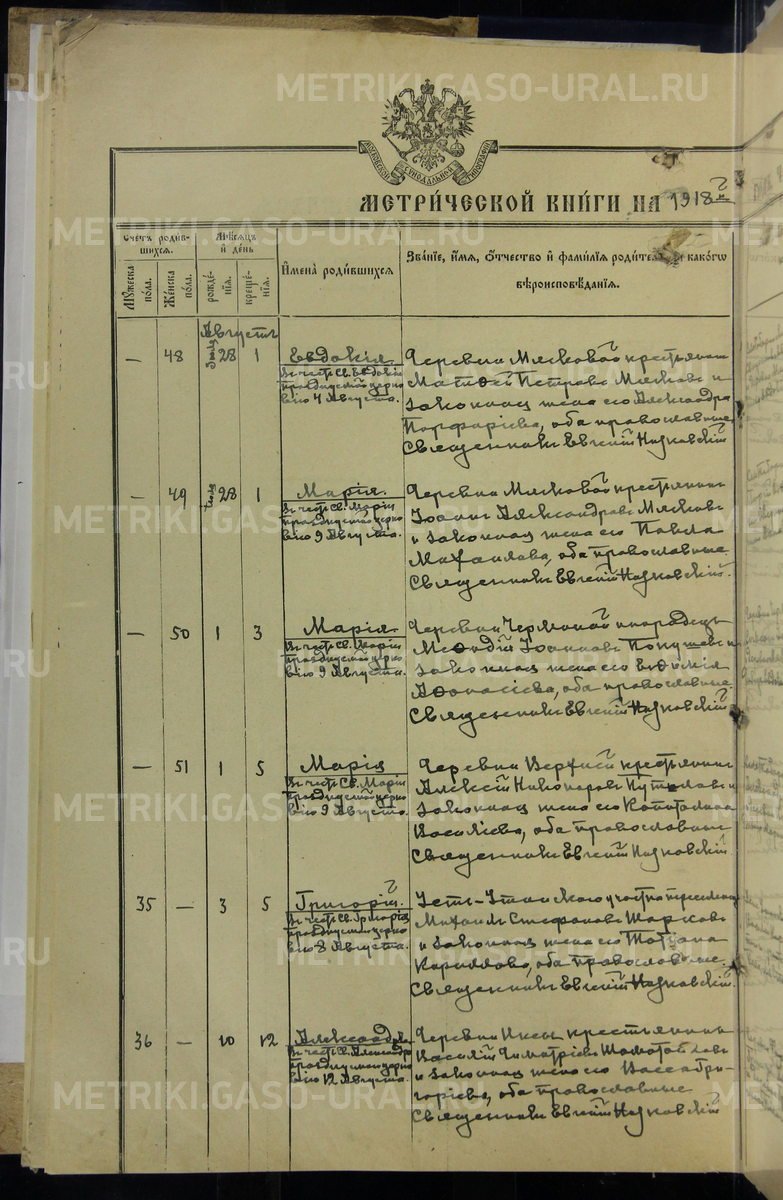 METRIKI.GASO-URAL.RU
МОСКОВСКОЙ СѴНОДАЛЬНОЙ ТИПОГРАФІИ
МЕТРИ́ЧЕСКОЙ КНИ́ГИ НА 1918 г.
Счетъ роди́вшихся.
Му́жеска по́ла.
Же́нска по́ла.
Мѣ́сяцъ и҆ де́нь
рожде́нія.
креще́нія.
И҆мена̀ роди́вшихся
Зва́ніе, и҆́мя, ѻ҆́тчество и҆ фами́лія роди́теле и҆ како́гѡ вѣроисповѣ́данія.
Августъ
— 48 Іюля 28 1 Евдокія
въ честь св. Евдокіи
празднуемой церко
вію 4 Августа.
Деревни Мясковой крестьянинъ
Матѳей Петровъ Мясковъ и
законная жена его Александра
Порфиріева, оба православные.
Священникъ Евгеній
— 49 Іюля 28 1 Марія.
въ честь св. Маріи
празднуемой церко
вію 9 Августа.
Деревни Мясковой крестьянинъ
Іоаннъ Александровъ Мясковъ
и законная жена его Павла
Михаилова, оба православные.
Священникъ Евгеній
— 50 1 3 Марія.
въ честь св. Маріи
празднуемой церко
вію 9 Августа.
Деревни инородецъ
Меѳодій Іоанновъ и
законная жена его Евѳимія
Аѳонасіева, оба православные.
Священникъ Евгеній
— 51 1 5 Марія
въ честь св. Маріи
празднуемой церко
вію 9 Августа.
Деревни Верхней крестьянинъ
Алексій Никаноровъ Путиловъ и
законная жена его Капитолина
Василіева, оба православные
Священникъ Евгеній
35 — 3 5 Григорій.
въ честь св. Григорія
празднуемаго церко
вію 8 Августа.
участка
Михаилъ Стефановъ Шарковъ
и законная жена его Татіана
Кириллова, оба православные.
Священникъ Евгеній
36 — 10 12 Александръ.
въ честь св. Александра
празднуемаго церко
вію 12 Августа.
Деревни Иксы крестьянинъ
Василій Димитріевъ
и законная жена его Васса Гри-
горіева, оба православные
Священникъ Евгеній